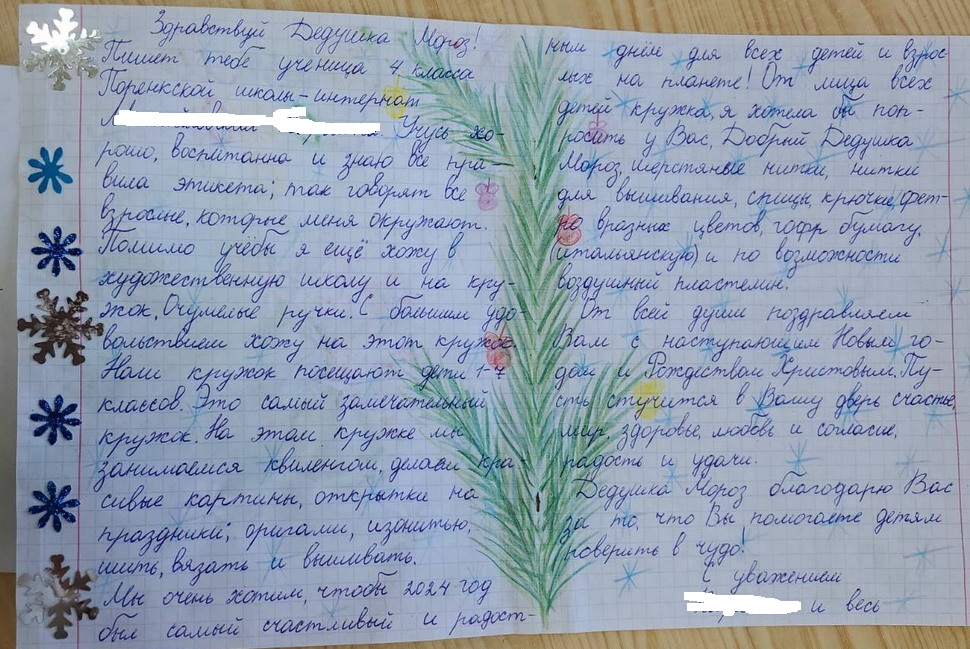 Здравствуй Дедушка Мороз!
Пишет тебе ученица 4 класса
Поренкской школы-интернат
Учусь хо-
рошо, воспитанна и знаю все пра-
вила этикета; так говорят все
взрослые, которые меня окружают.
Помимо учёбы я ещё хожу в
художественную школу и на кру-
жок, Очумелые ручки. С большим удо-
вольствием хожу на этот кружок.
Наш кружок посещают дети 1-7
классов. Это самый замечательный
кружок. На этом кружке мы
занимаемся квиленгом, делаем кра-
сивые картины, открытки на
праздники; оригами, изонитью,
шить, вязать и вышивать.
Мы очень хотим, чтобы 2024 год
был самый счастливый и радост-
ным днём для всех детей и взрос-
лых на планете! От лица всех
детей кружка, я хотела бы поп-
росить у Вас, Добрый Дедушка
Мороз, шерстяные нитки, нитки
для вышивания, спицы, крючки, фет-
ра вразных цветов, гофр бумагу,
(итальянскую) и по возможности
воздушный пластелин.
От всей души поздравляем
Вам с наступающем Новым го-
дом и Рождеством Христовым. Пу-
сть стучится в Вашу дверь счастье,
мир, здоровье, любовь и согласие,
радость и удачи.
Дедушка Мороз благодарю Вас
за то, что Вы помогаете детям
поверить в чудо!
С уважением
и весь